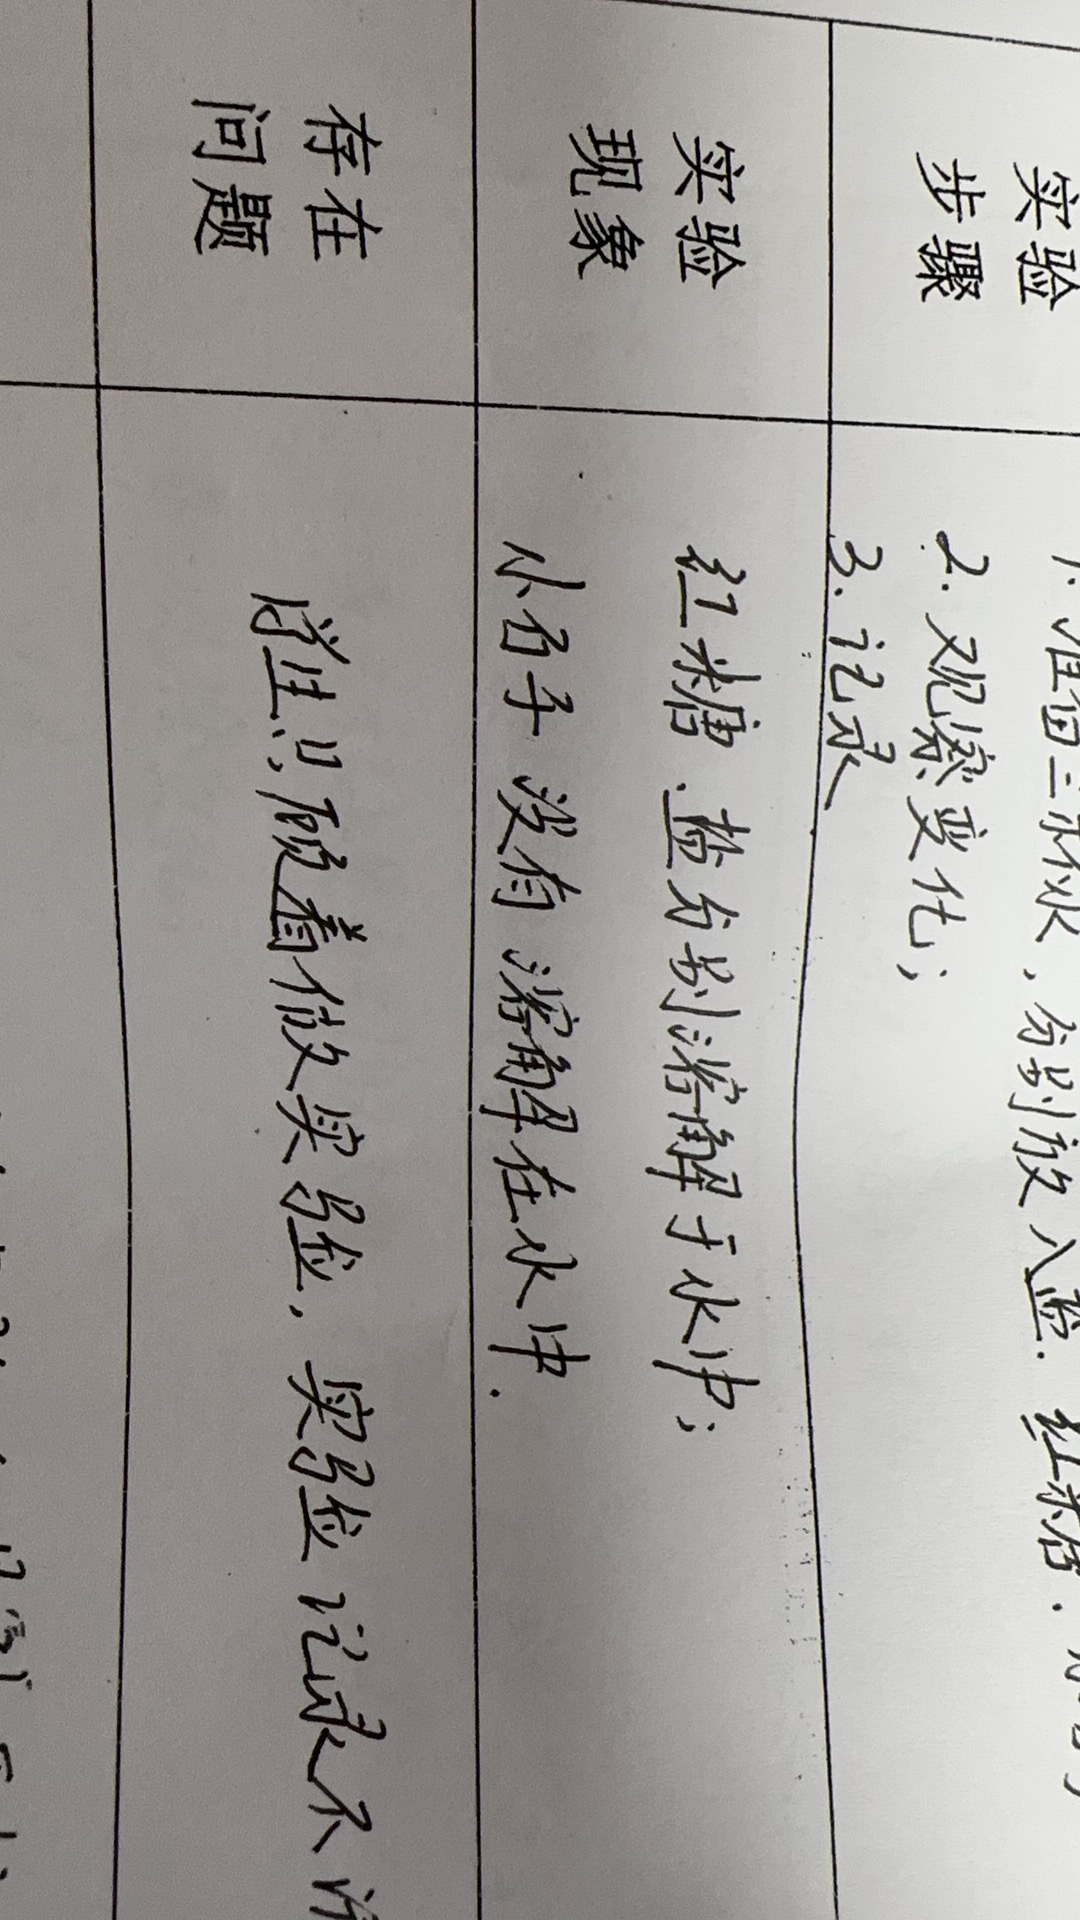 实验
步骤
1. 准备三杯水，分别放入盐、红糖、
2. 观察变化；
3. 记录
实验
现象
红糖、盐分别溶解于水中；
小石子没有溶解在水中.
存在
问题
学生只顾着做实验，实验记录不